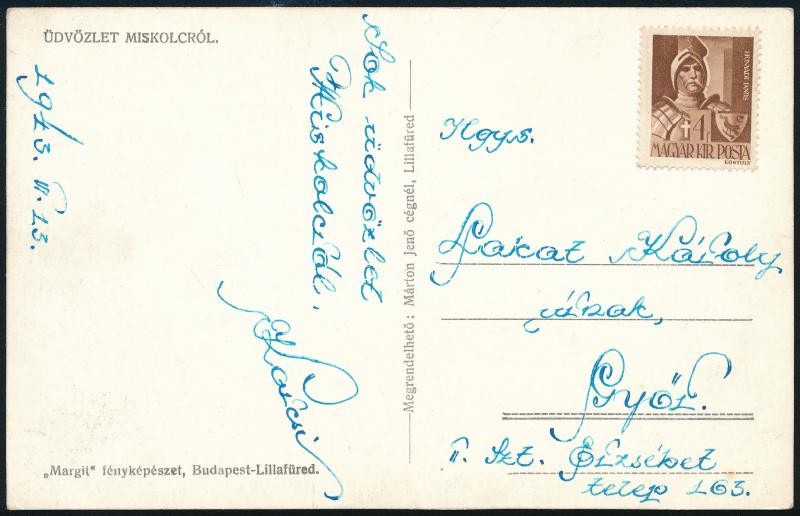 ÜDVÖZLET MISKOLCRÓL.
1943. VI. 13.
Sok üdvözlet
Miskolcról.
Karcsi
„Margit“ fényképészet, Budapest-Lillafüred.
Megrendelhető: Márton Jenő cégnél, Lillafüred
HUNYADI JÁNOS
4f
MAGYAR KIR. POSTA
KONTULY
Ngys.
Lakat Károly
úrnak,
Győr.
II. Szt. Erzsébet
telep 163.